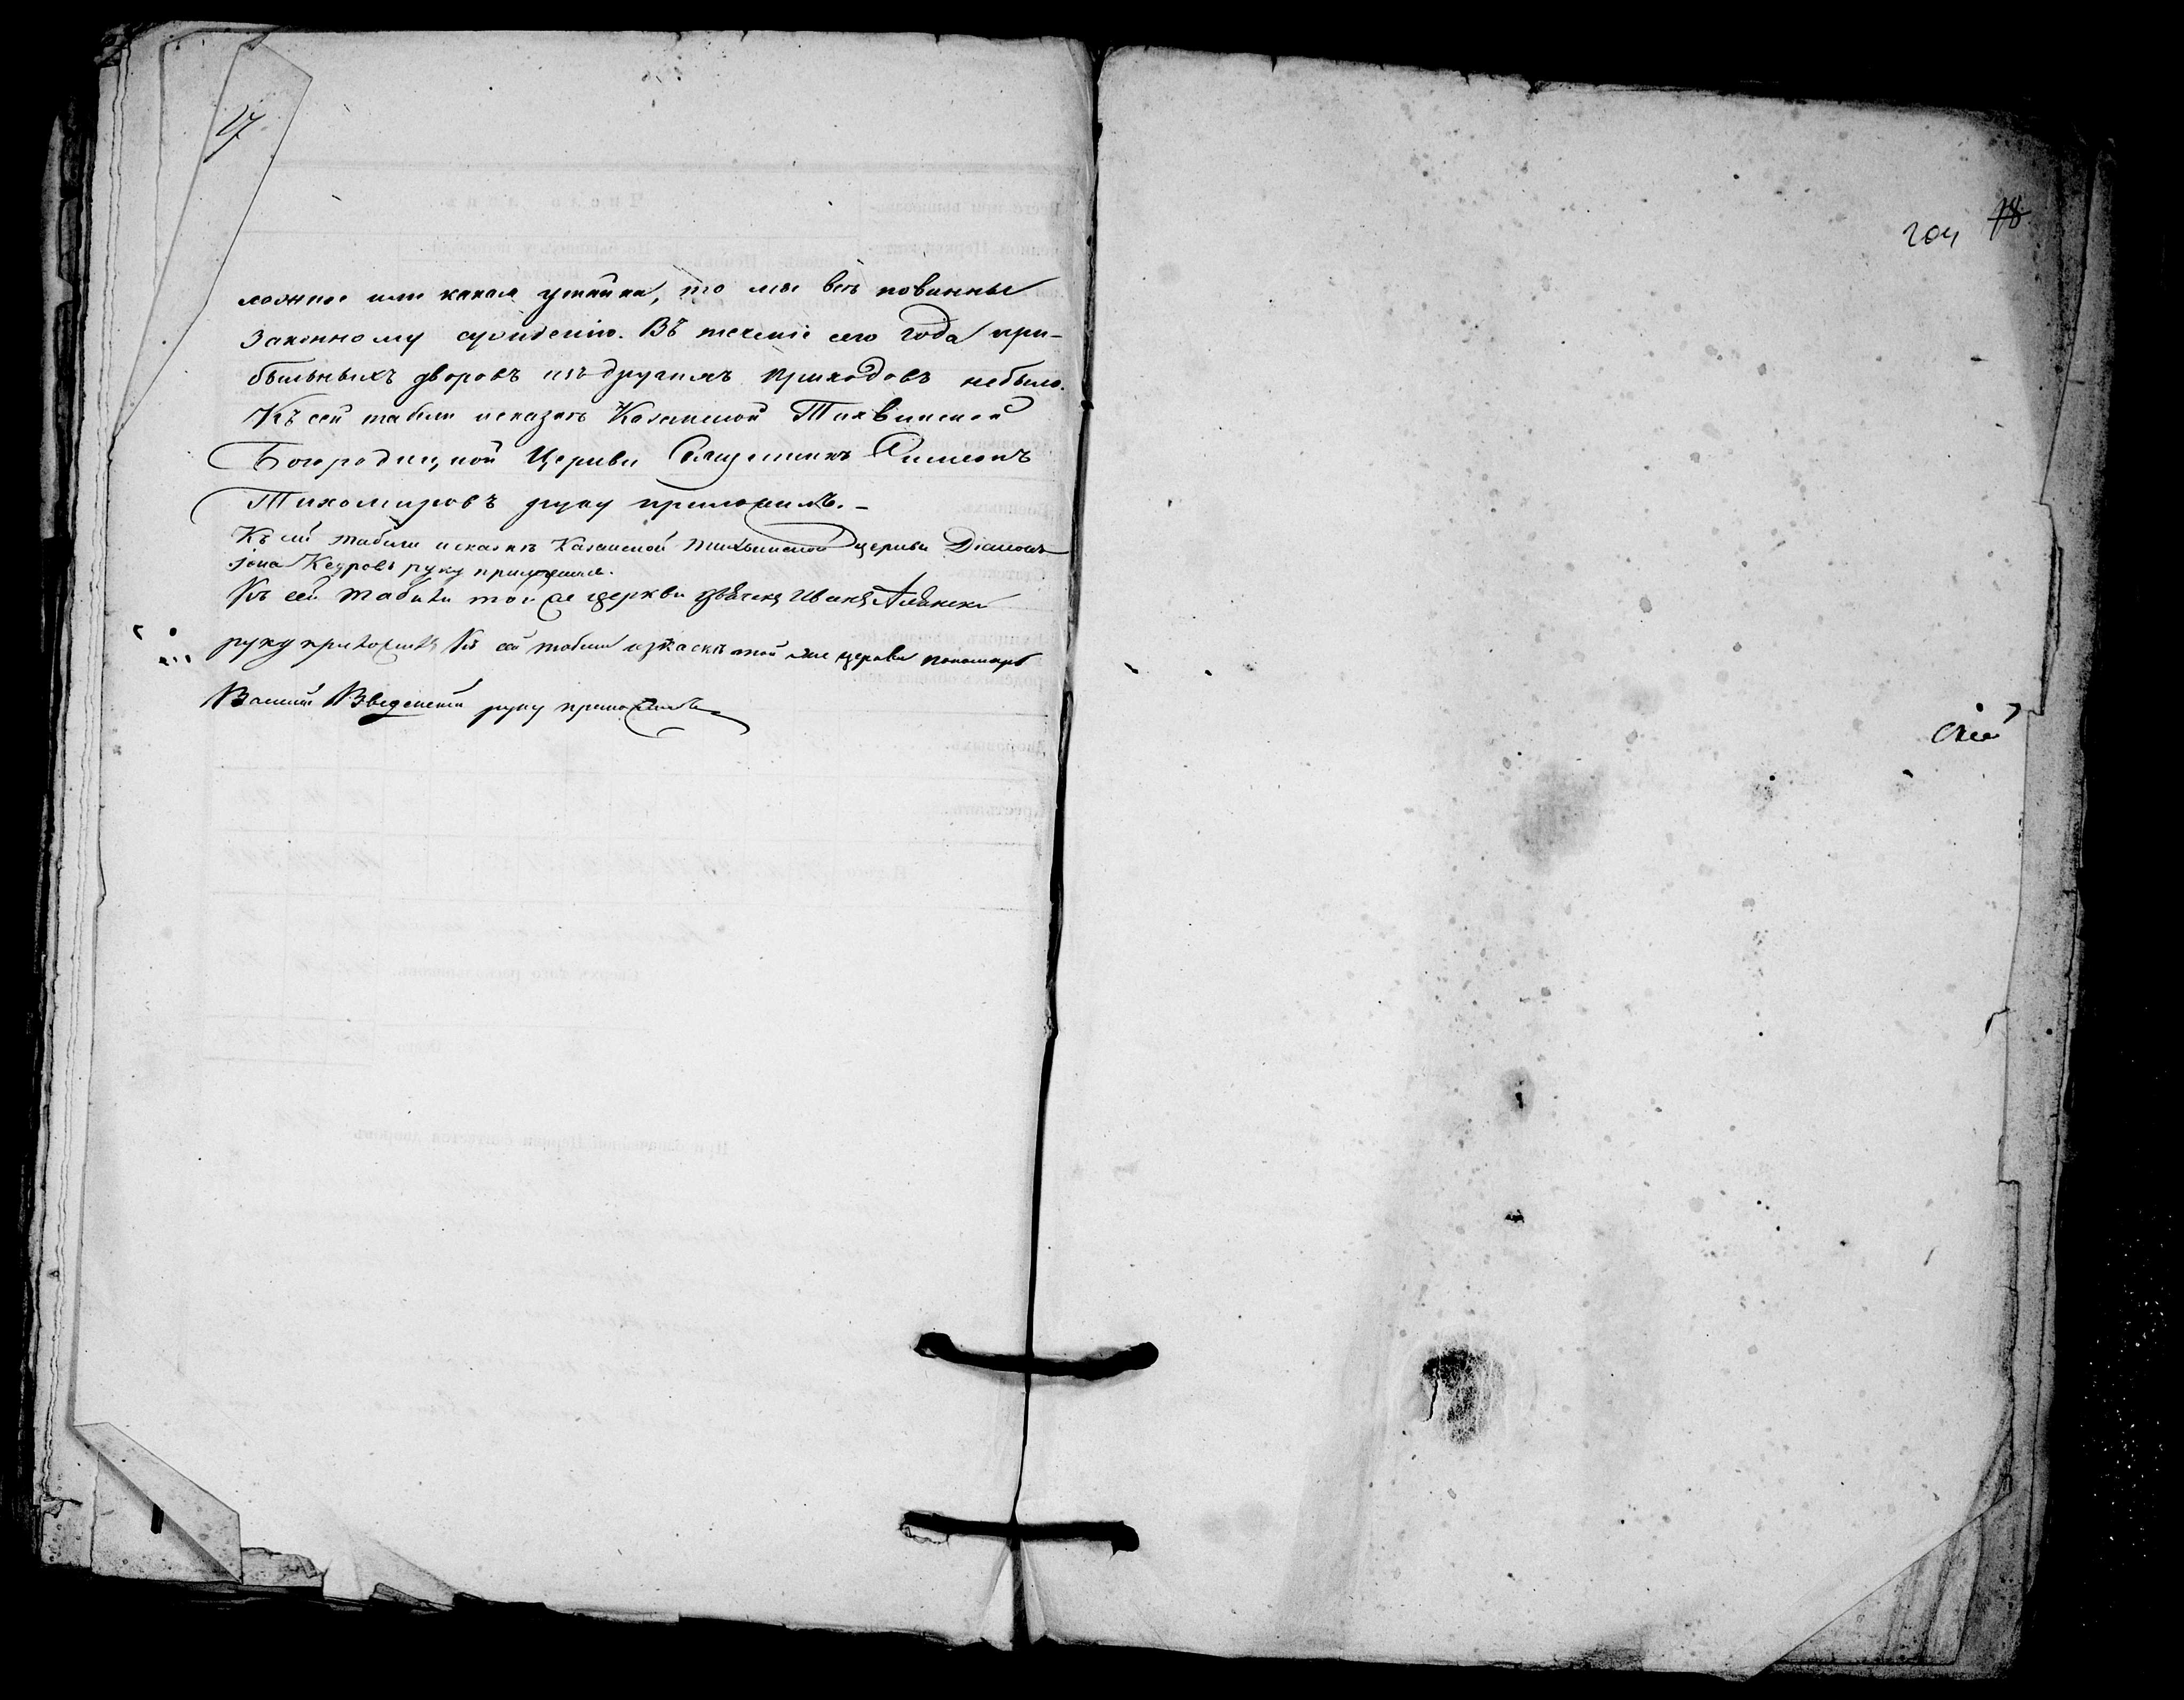 17
ложное или какая утайка, то мы всѣ повинны
законному суждению. Въ теченіе сего года при-
быльныхъ дворовъ изъ другихъ приходовъ небыло.
Къ сей табели и сказкѣ Казанской Тихвинской
Богородицкой Церкви Священникъ Симеонъ
Тихомировъ руку приложилъ.-
Къ сей табели и сказкѣ Казанской Тихвинской церкви Діаконъ
Іона Кедровъ руку приложилъ.
Къ сей табели той же церкви дьячекъ Иванъ
руку приложилъ Къ сей табели и сказкѣ той же церкви пономарь
Василий Введенский руку приложилъ
204 18